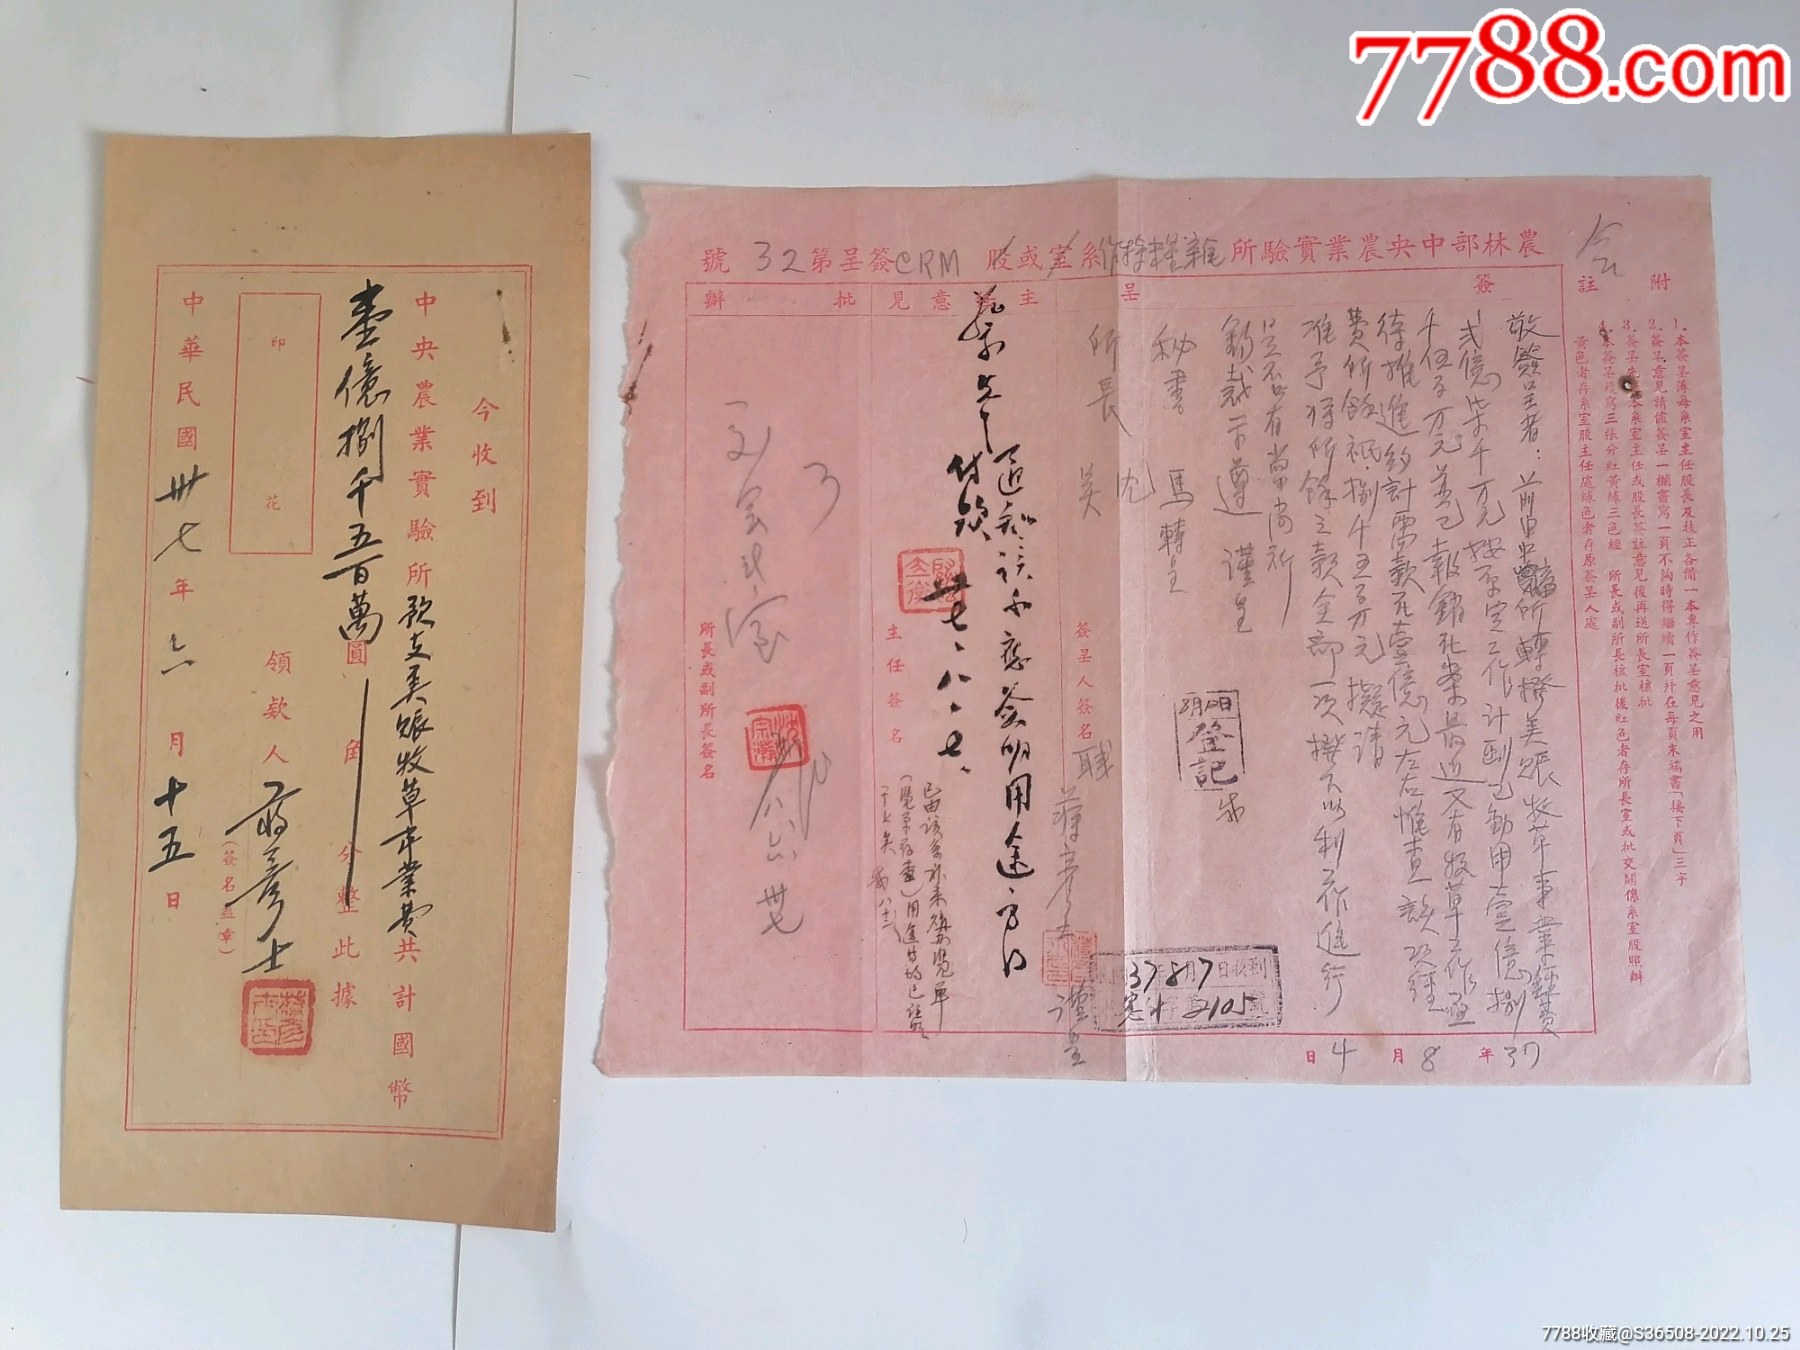 7788.com
今收到
中央農業實驗所歀支美賬牧草事業費共計國幣
壹億捌千五百萬圓 角 分整此據
領欵人 蔣彥士 (簽名蓋章)
印花
中華民國卅七年六月十五日
農林部中央農業實驗所雜糧特作系室或股CRM簽呈第32號
附註
1.本簽呈薄每系室主任股長及技正各備一本專作簽呈意見之用
2.簽呈意見請儘簽呈一欄書寫一頁不夠時得繼續一頁幷在每頁末端書「接下頁」三字
3.簽呈先 本系室主任或股長簽註意見後再送所長室核批
4.本簽呈 寫三張分紅黃綠三色經 所長或副所長核批後紅色者存所長室或批交關係系室股照辦
黃色者存系室股主任處綠色者存原簽呈人處
簽呈
敬簽呈者:前由中 所轉撥美賬牧草事業經費
弍億柒千万元按 定工作計劃已動用壹億捌
千伍百万元並已報銷在案最近又有牧草工作亟
待推進約計需款在壹億元左右惟查該項經
費所餘祇捌千五百万元擬請
准予將所餘之款全部一次撥下以利工作進行
是否有當尚祈
鈞裁示遵 謹呈
秘書 馬轉呈
所長 沈
吳
簽呈人簽名 職 蔣彥士 謹呈
8月 日 登記
37年8月7日收到
字 2105 號
37年8月4日
主任意見
蔡先生 通知該系應簽明用途方可
付欵 卅七、八、七、
主任簽名
已由該系補來 單
用途 已註明
批辦
所長或副所長簽名
7788收藏@S36508-2022.10.25